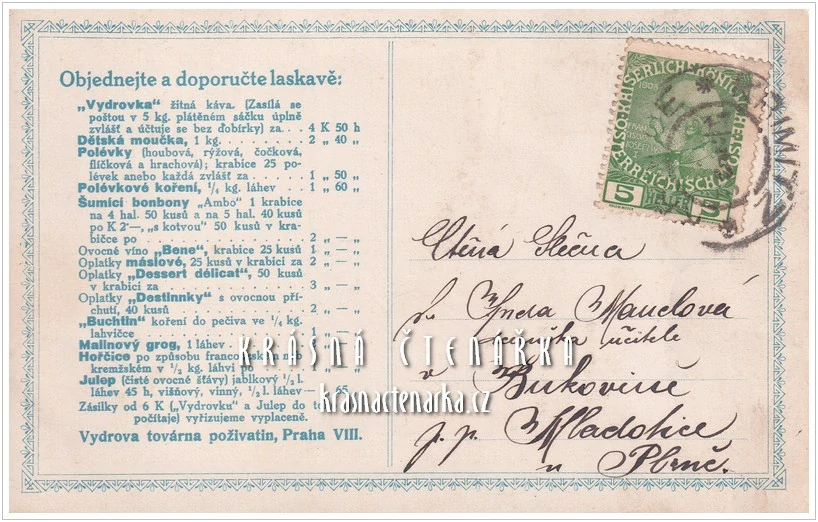 Objednejte a doporučte laskavě:
„Vydrovka“ žitná káva. (Zasílá se
poštou v 5 kg. plátěném sáčku úplně
zvlášť a účtuje se bez dobírky) za. . 4 K 50 h
Dětská moučka, 1 kg. . . . . 2 „ 40 „
Polévky (houbová, rýžová, čočková,
flíčková a hrachová); krabice 25 po-
lévek anebo každá zvlášť za . . . 1 „ 50 „
Polévkové koření, ¹/₄ kg. láhev . . 1 „ 60 „
Šumící bonbony „Ambo“ 1 krabice
na 4 hal. 50 kusů a na 5 hal. 40 kusů
po K 2·—, „s kotvou“ 50 kusů v kra-
bičce po . . . . . . . 2 „ — „
Ovocné víno „Bene“, krabice 25 kusů 1 „ — „
Oplatky máslové, 25 kusů v krabici za 2 „ — „
Oplatky „Dessert délicat“, 50 kusů
v krabici za . . . . . . 3 „ — „
Oplatky „Destinnky“ s ovocnou pří-
chutí, 40 kusů . . . . . 2 „ — „
„Buchtin“ koření do pečiva ve ¹/₄ kg.
lahvičce . . . . . . . 1 „ — „
Malinový grog, 1 láhev . . .
Hořčice po způsobu francouzském neb
kremžském v ¹/₂ kg. láhvi po
Julep (čisté ovocné šťávy) jablkový ¹/₂ l.
láhev 45 h, višňový, vinný, ¹/₂ l. láhev— „ 65 „
Zásilky od 6 K („Vydrovku“ a Julep do to
počítaje) vyřizujeme vyplaceně.
Vydrova továrna poživatin, Praha VIII.
5 5
Ctěná Slečna
sl. Anda Mandlová
učitele
v Bukovině
p. p. Mladotice
u Plzně.
KRÁSNÁ ČTENÁŘKA
krasnactenarka.cz